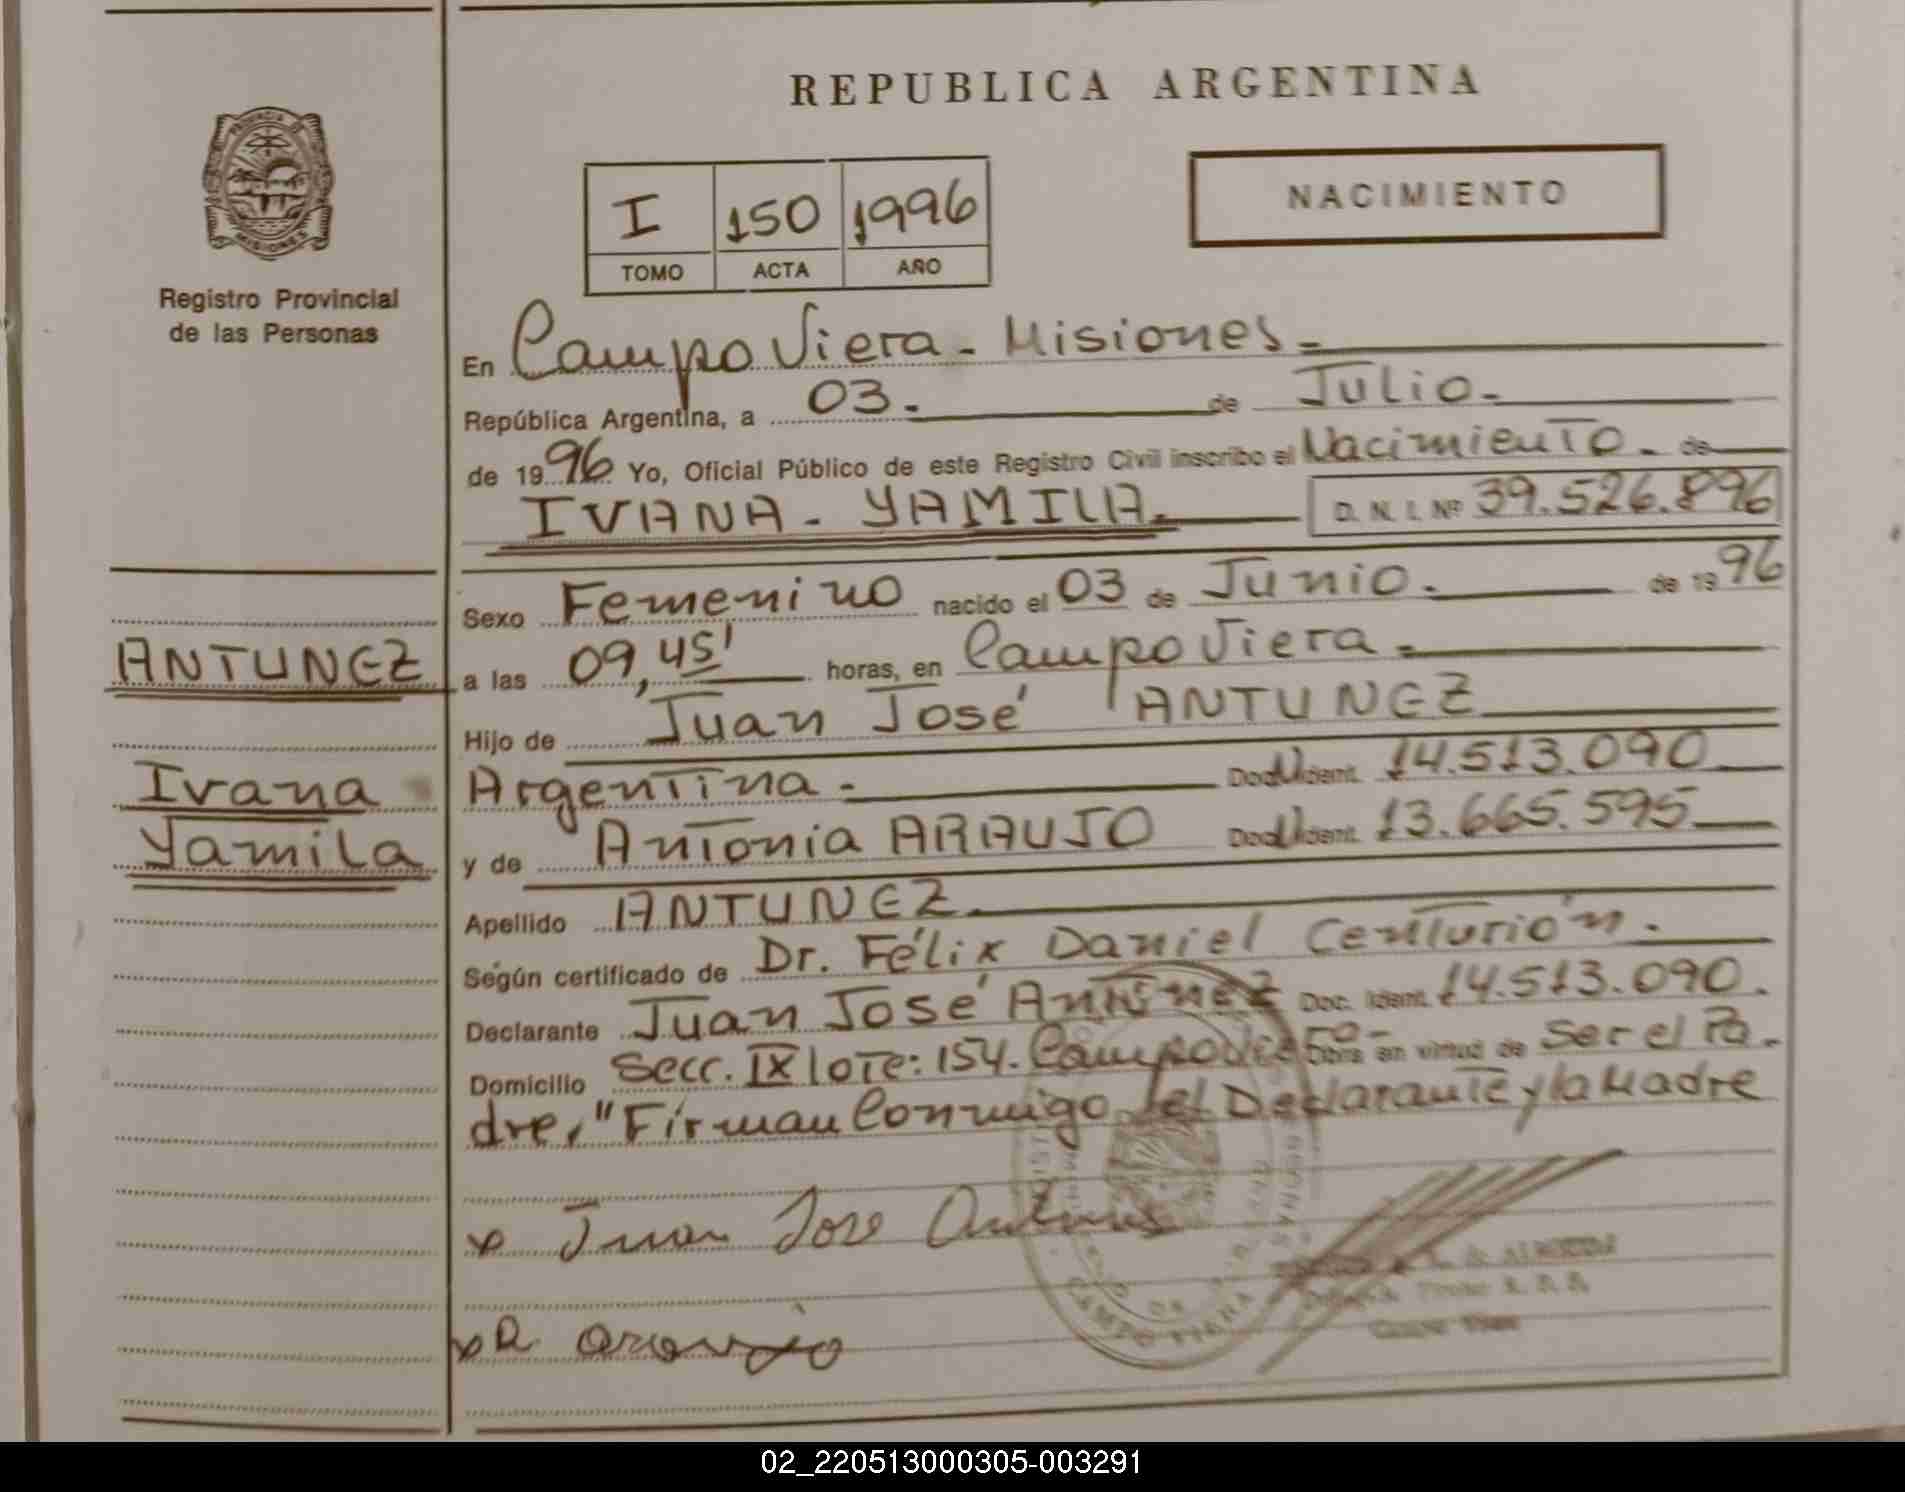 REPUBLICA ARGENTINA
PROVINCIA DE
MISIONES
Registro Provincial
de las Personas
I 150 1996
TOMO ACTA AÑO
NACIMIENTO
En Campo Viera - Misiones.
República Argentina, a 03. de Julio.
de 1996 Yo, Oficial Público de este Registro Civil inscribo el Nacimiento. de
IVANA - YAMILA. D. N. I. Nº 39.526.896
Sexo Femenino nacido el 03 de Junio. de 1996
ANTUNEZ
a las 09,45' horas, en Campo Viera.
Hijo de Juan José ANTUNEZ
Ivana
Argentina. Doc. Ident. 14.513.090
Yamila
y de Antonia ARAUJO Doc. Ident. 13.665.595
Apellido ANTUNEZ.
Según certificado de Dr. Félix Daniel Centurión.
Declarante Juan José Antúnez Doc. Ident. 14.513.090.
Domicilio Secc. IX lote: 154. Campo Viera Obra en virtud de Ser el Pa-
dre, "Firman Conmigo el Declarante y la Madre
x Juan Jose
CAMPO VIERA
x A
02_220513000305-003291